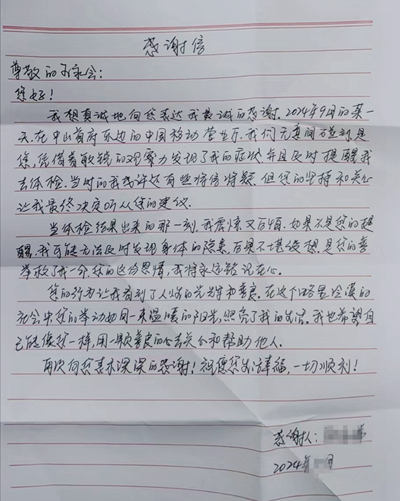 感谢信
尊敬的石永会:
您好!
我想真诚地向您表达我最诚的感谢。2024年9月的某一
天,在中山首府东边的中国移动营业厅,我们无意间碰到是
您,凭借着敏锐的观察力发现了我的症状并且及时提醒我
去体检。当时的我或许还有些将信将疑,但您的坚持和关心
让我最终决定听从您的建议。
当体检结果出来的那一刻,我震惊又后怕,如果不是您的提
醒,我可能无法及时发现身体的隐患,后果不堪设想是您的善
举救了我一命您的这份恩情,我将永远铭记在心。
您的行为让我看到了人性的光辉和善良。在这个略显冷漠的
社会中您的举动如同一束温暖的阳光,照亮了我的生活。我也希望自
己能像您一样,用一颗善良的心去关心和帮助他人。
再次向您表示深深的感谢!祝愿您生活幸福,一切顺利!
感谢人:
2024年 月